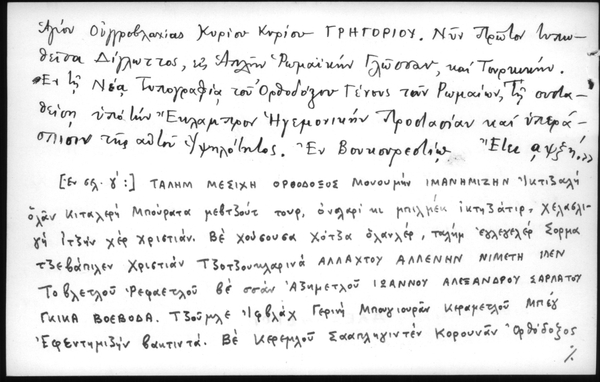 Ἁγίου Οὐγγροβλαχίας Κυρίου Κυρίου ΓΡΗΓΟΡΙΟΥ. Νῦν Πρῶτον τυπω-
θεῖσα Δίγλωττος, εἰς Ἁπλῆν Ῥωμαϊκὴν Γλῶσσαν, καὶ Τουρκικήν.
Ἐν τῇ Νέᾳ Τυπογραφίᾳ τοῦ Ὀρθοδόξου Γένους τῶν Ῥωμαίων, τῇ συστα-
θείσῃ ὑπὸ τὴν Ἔκλαμπρον Ἡγεμονικὴν Προστασίαν καὶ ὑπερά-
σπισιν τῆς αὐτοῦ Ὑψηλότητος. Ἐν Βουκουρεστίῳ
[Ἐν σελ. γ΄:] ΤΑΛΗΜ ΜΕΣΙΧΗ ΟΡΘΟΔΟΞΟΣ Μουουμὴν ΙΜΑΝΗΜΙΖΗΝ Ἰκτιζαλὴ
ὀλὰν Κιταπερὴ Μπούρατα μεβτζοὺτ τουρ, κι μπιλμέκ ἰκτηζάτιρ,
γὴ Ἰτζὴν χὲρ Χριστιάν. Βὲ χούσουσα Χότζα ὀλανλὲρ, ταλὴμ ἐγλεγελὲρ Σορμα
τζεβάπιλεν Χριστιὰν Τζοτζουκλαρινὰ ΑΛΛΑΧΤΟΥ ΑΛΛΕΝΗΝ ΝΙΜΕΤΗ ΙΛΕΝ
Τοβλετλοῦ Ῥεφαετλοῦ βὲ σσὰν Ἀζημετλοῦ ΙΩΑΝΝΟΥ ΑΛΕΞΑΝΔΡΟΥ ΣΑΡΛΑΤΟΥ
ΓΚΙΚΑ ΒΟΕΒΟΔΑ. Τζούμλε Ἰφβλὰχ Γερινὴ Μπουγιουρὰν Κεραμετλοῦ Μπέγ
Ἐφεντημιζὴν βακτιντά. Βὲ Κερεμλοῦ Σααπληγιντὲν Κορουνὰν Ὀρθόδοξος